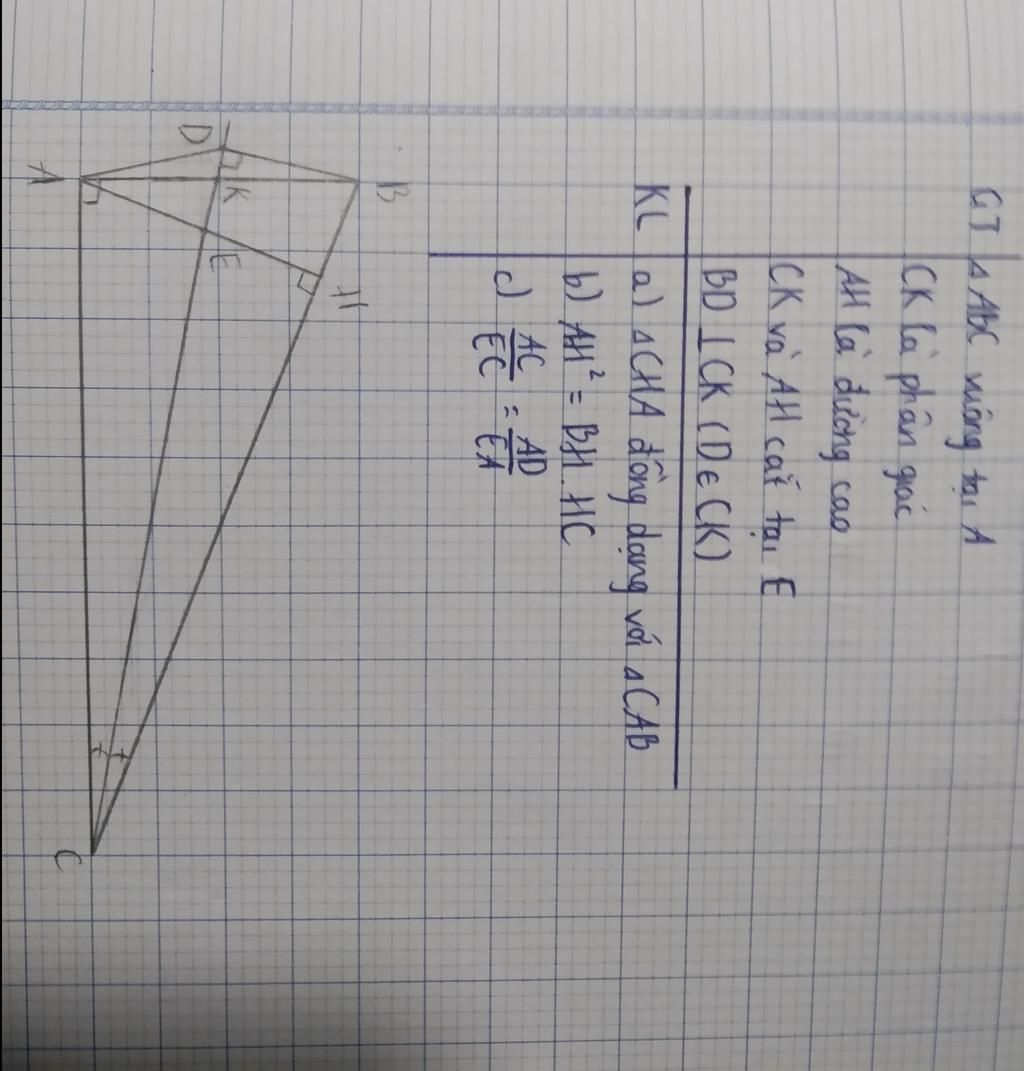 GT Δ ABC vuông tại A
CK là phân giác
AH là đường cao
CK và AH cắt tại E
BD ⊥ CK (D ∈ CK)
KL a) ΔCHA đồng dạng với ΔCAB
b) AH² = BH.HC
c) AC/EC = AD/EA
B
D
K
H
E
A
C